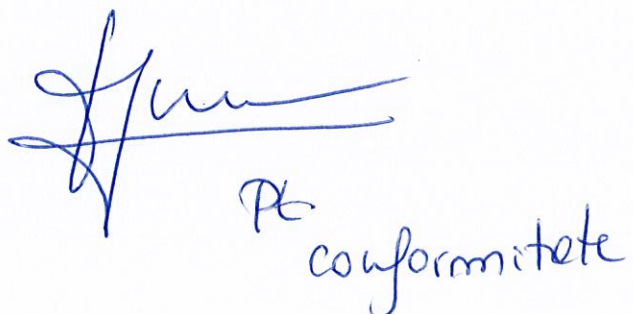 Pt
conformitate